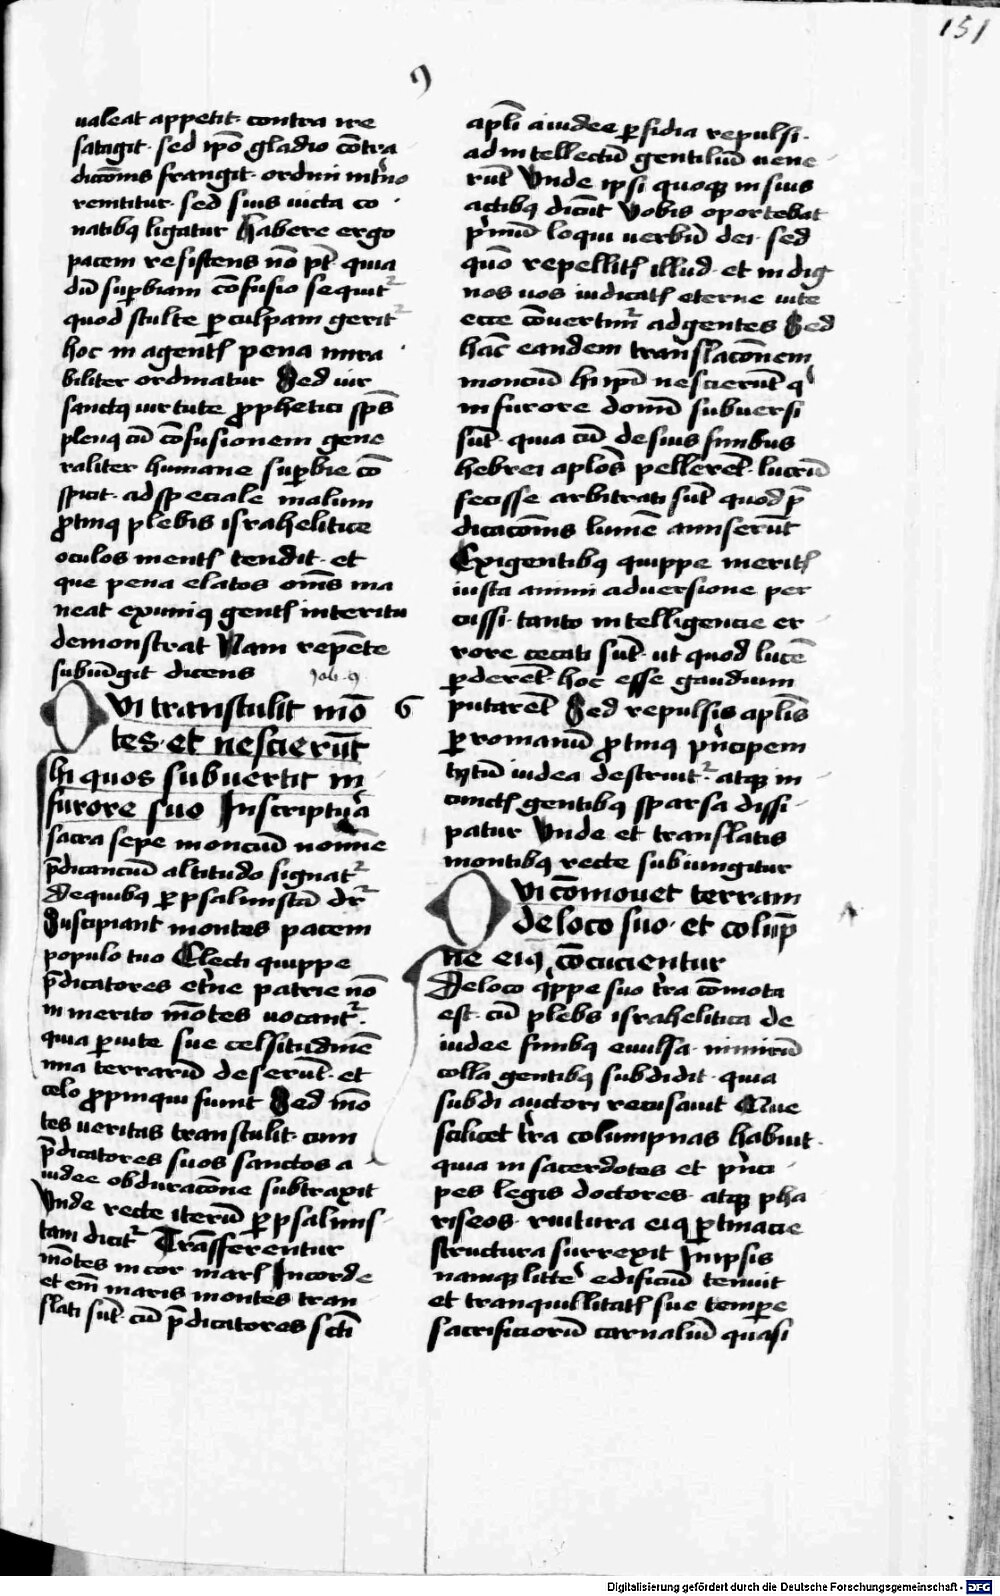 151
9
ualeat appetit· contra ire
satagit· sed ip̄o gladio cōtra
dicc̄ōnis frangit· ordini int̾no
renititur· sed suis uicta co
natibꝫ ligatur Habere ergo
pacem resistens nō pt̄ quia
dū supbiam cōfusio sequit᷑
quod stulte ꝑ culpam gerit᷑
hoc in agentꝭ pena mira
biliter ordinatur Sed uir
sanctꝰ uirtute ꝓphetici sp̄s
plenꝰ cū cōfusionem gene
raliter humane suꝑbie cō
spicit· ad speciale malum
ꝓtinꝰ plebis israhelitice
oculos mentꝭ tendit· et
que pena elatos om̄s ma
neat ex uniꝰ gentꝭ interitu
demonstrat Nam repēte
subiūgit dicens Job · 9 ·
Qvi transtulit mō G
tes· et nescierūt
hi quos subuertit in
furore suo In scriptu͛a
sacra sepe monciū nomīe
p̄dicanciū altitudo signat᷑
De quibꝫ ꝑ psalmistā dr̄
Suscipiant montes pacem
populo tuo Electi quippe
p̄dicatores et̾ne patrie nō
inmerito mōtes uocant᷑
quia ꝑ uite sue celsitudinē
ima terrarū deserūt· et
celo ꝓpinqui fiunt Sed mō
tes ueritas transtulit· cum
p̄dicatores suos sanctos a
iudee obduracōne subtraxit
Vnde recte iterū ꝑ psalmis
tam dicit᷑ Trāsferentur
mōtes in cor marꝭ In corde
et em̄ maris montes tran
slati sūt· cū p̄dicatores sc̄i
apl̄i a iudee ꝑfidia repulsi·
ad intellectū gentiliū uene
rūt Vnde ipsi quoqꝫ in suis
actibꝫ dicūt Vobis oportebat
p͛mū loqui uerbū dei· sed
quō repellitꝭ illud· et indig
nos uos iudicatꝭ eterne uite
ecce cōuertim᷑ ad gentes Sed
hāc eandem translacōnem
monciū hi ip̄i nescierūt qͥ
in furore domī subuersi
sūt· quia cū de suis finibus
hebrei aplōs pellerēt· lucrū
fecisse arbitrati sūt quod p̄
dicacōnis lumē amiserūt
Exigentibꝫ quippe meritꝭ
iusta animi aduersione per
cussi· tanto intelligencie er
rore cecati sūt· ut quod lucē
ꝑderēt· hoc esse gaudium
putarēt Sed repulsis aplīs
ꝑ romanū ꝓtinꝰ p͛ncipem
tytū iudea destruit᷑· atqꝫ in
cunctꝭ gentibꝫ sparsa dissi
patur Vnde et translatis
montibꝫ recte subiungitur
Qvi cōmouet terram
de loco suo· et colūp̄
ne eiꝰ cōcucientur
De loco q͛ppe suo t̾ra cōmota
est· cū plebs israhelitica de
iudee finibꝫ euulsa· nimirū
colla gentibꝫ subdidit· quia
subdi auctori recusauit Que
scilicet t̾ra columpnas habuit·
quia in sacerdotes et p͛nci
pes legis doctores· atqꝫ pha
riseos· ruitura eiꝰ ꝑtinacie
structura surrexit In ipsis
namqꝫ litte͛ edificiū tenuit
et tranquillitatꝭ sue tempe
sacrificiorū carnaliū quasi
Digitalisierung gefördert durch die Deutsche Forschungsgemeinschaft - DFG